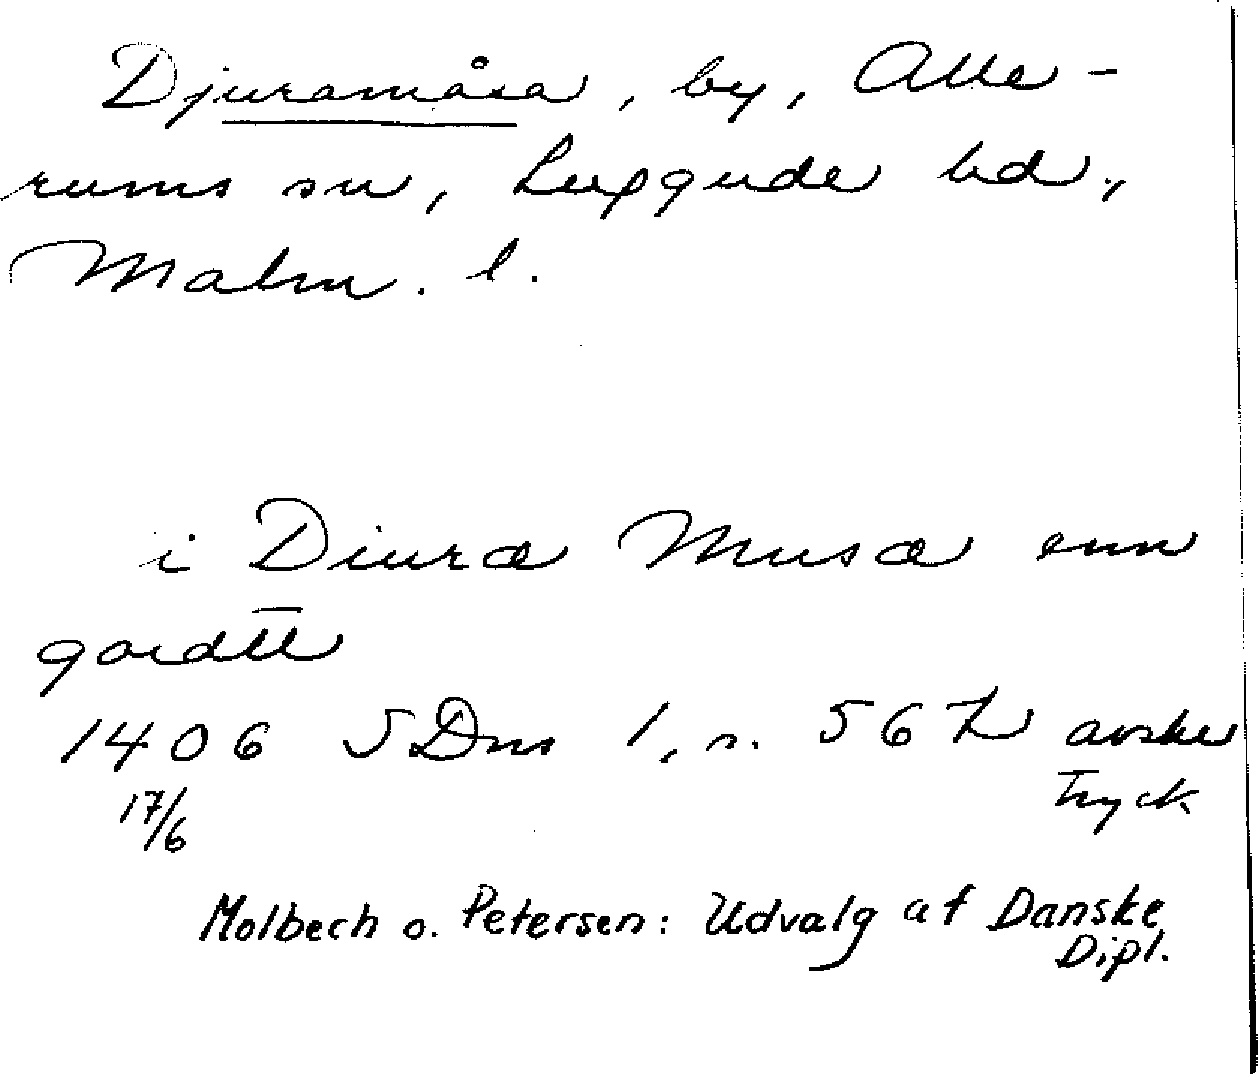 Djuramåsa, by, Alle-
rums sn, Luggude hd.,
Malm. l.
i Diuræ Musæ enn
gordtt
1406 SDns 1, s. 567 avskr
17/6 tryck
Molbech o. Petersen: Udvalg af Danske
Dipl.